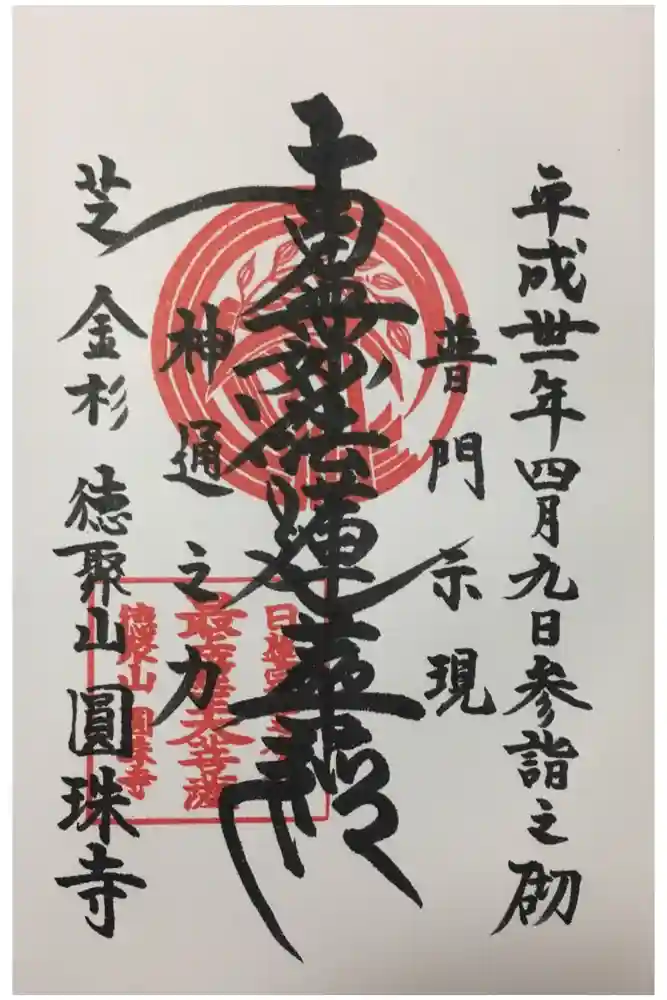 平成卅一年四月九日参詣之砌
普門示現
南無妙法蓮華経
神通之力
芝金杉 徳聚山 圓珠寺
最上位経王大菩薩
徳聚山 圓珠寺